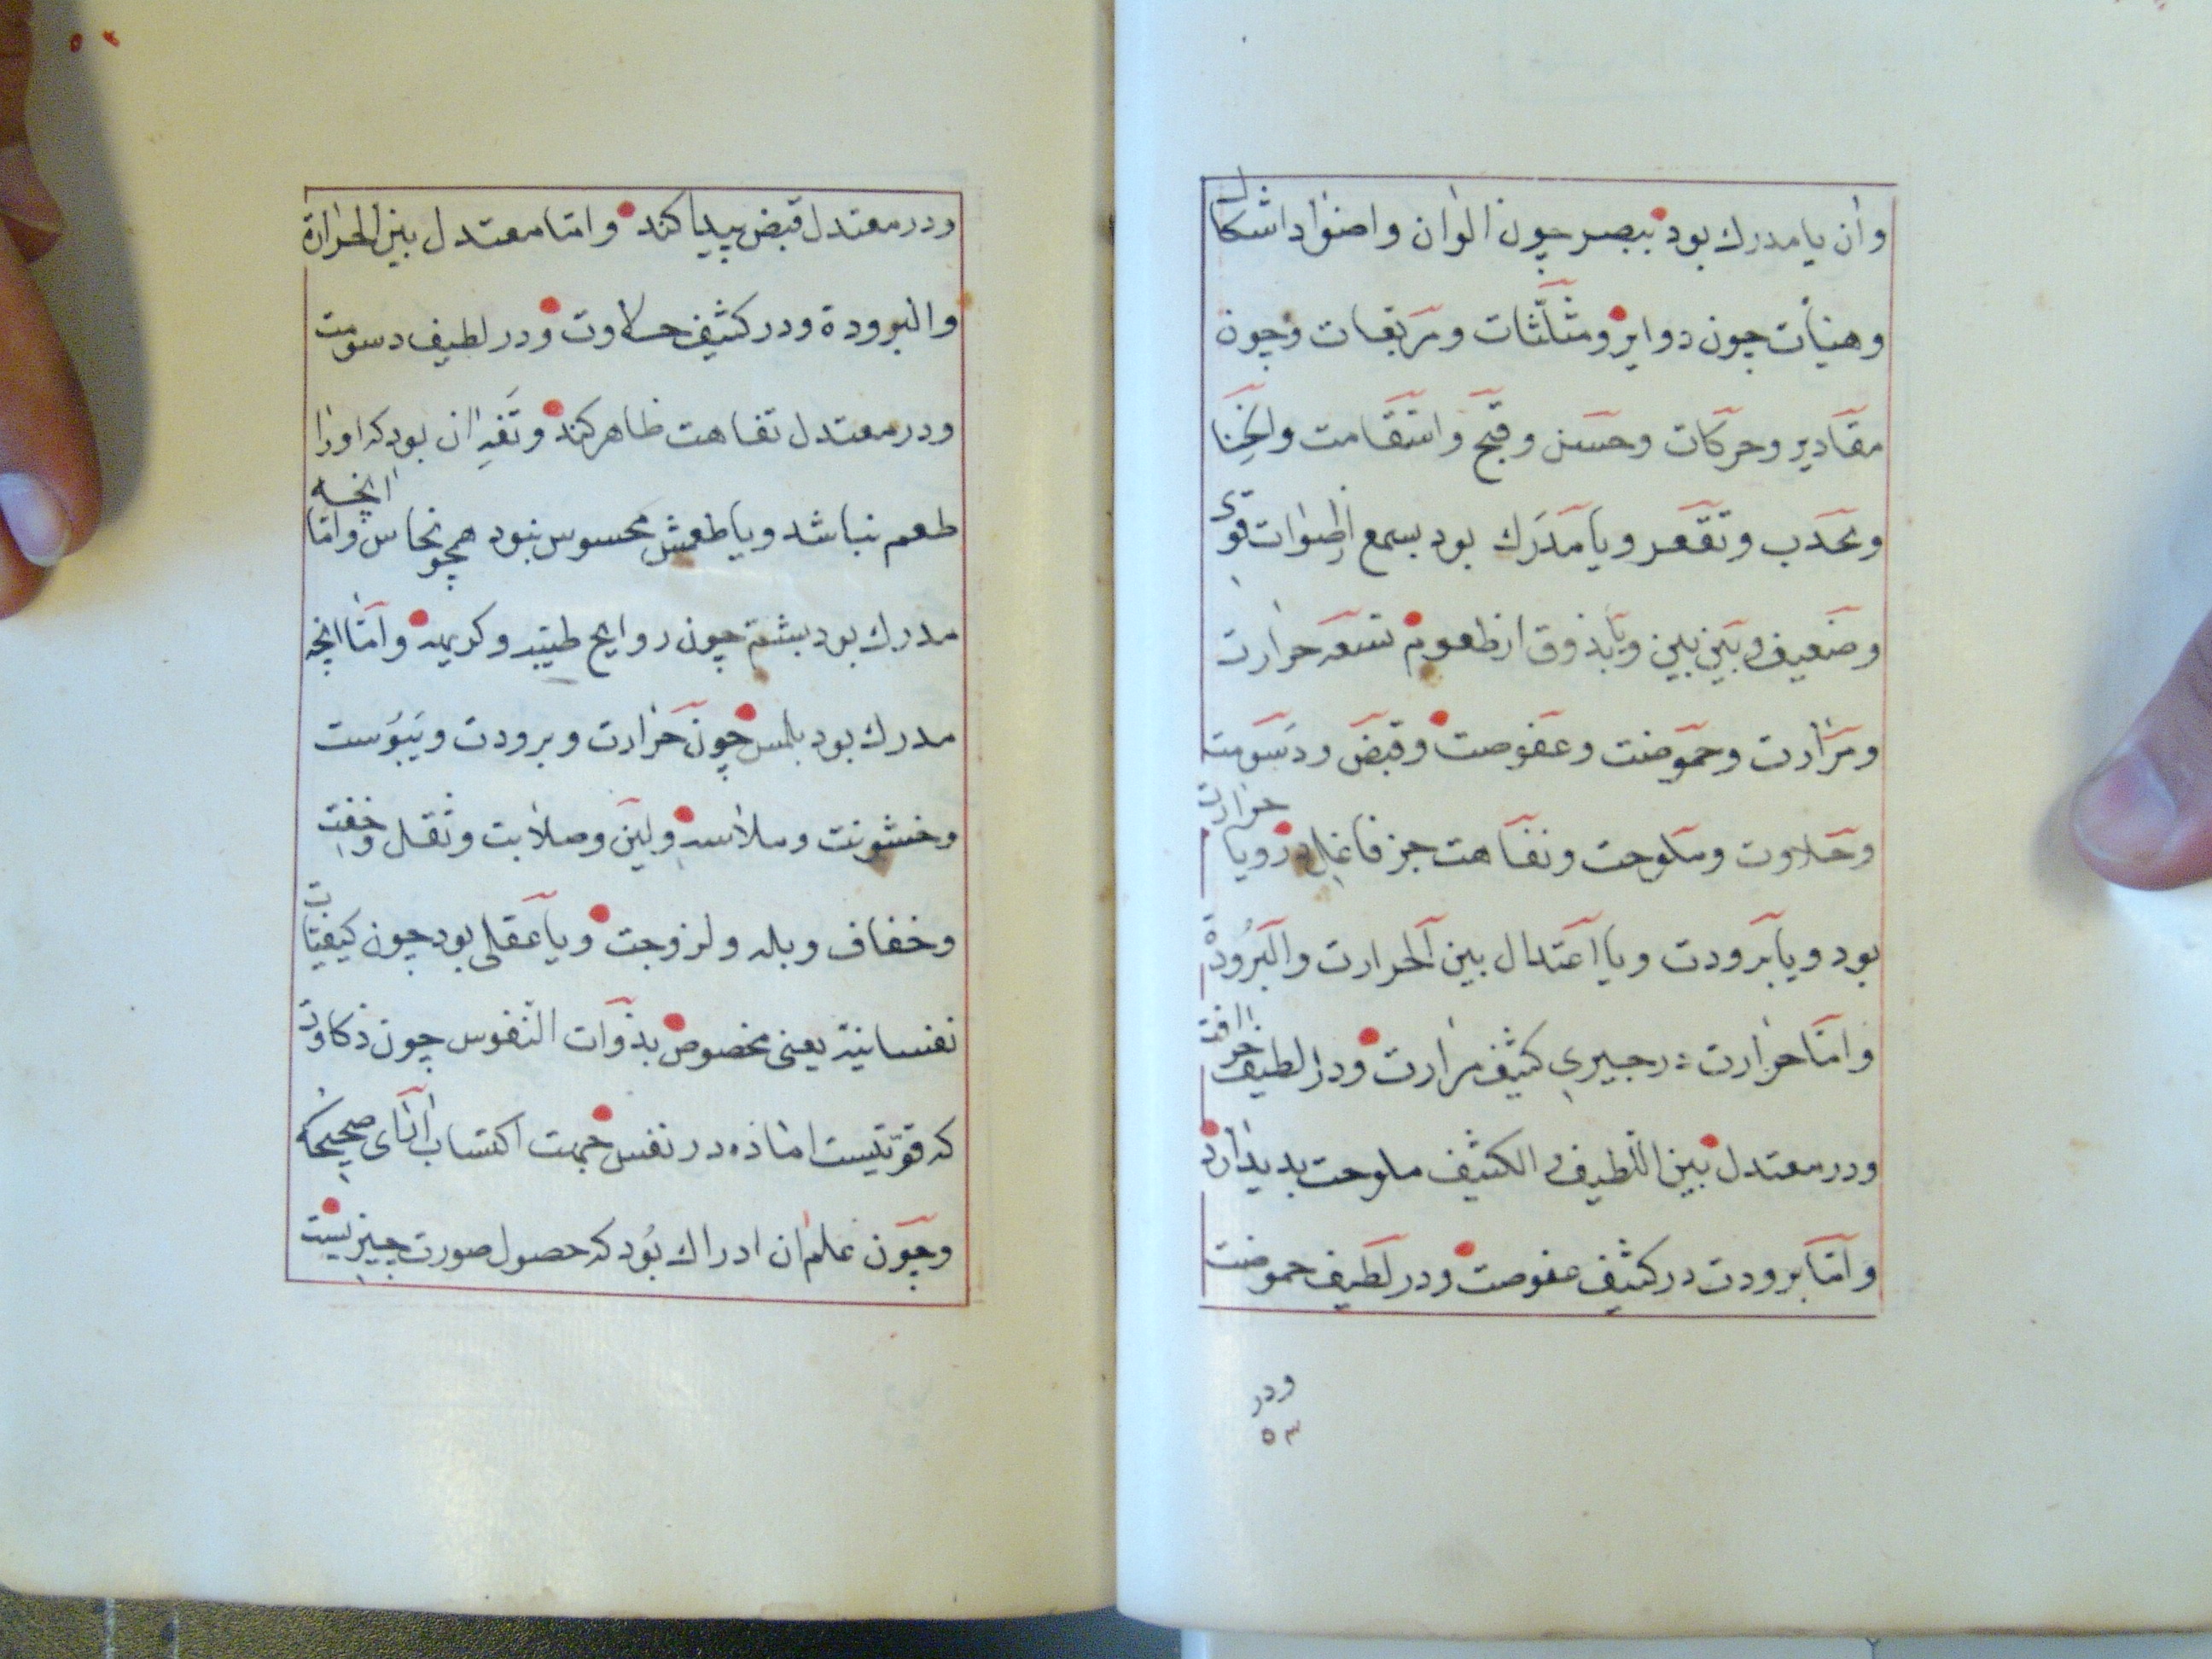 وان يا مدرك بود ببصر چون الوان واضواد اشكال
وهيأت چون دواير ومثلّثات ومربعات وچون
مقادير وحركات وحسن وقبح واستقامت وانحنا
وتحدب وتقعر ويا مدرك بود بسمع از اصوات قوى
وضعيف وبين بين ويا بذوق از طعوم تسعه حرارت
ومرارت وحموضت وعفوصت وقبض ودسومت
وحلاوت وملوحت وتفاهت جز فاعل درو يا حرارت
بود ويا برودت ويا اعتدال بين الحرارت والبرودة
وامّا حرارت در جيرى كثيف مرارت ودر لطيف حرافت
ودر معتدل بين اللطيف والكثيف ملوحت بديد ارد
وامّا برودت در كثيف عفوصت ودر لطيف حموضت
ودر
٥٣
٥٣
ودر معتدل قبض پيدا كند وامّا معتدل بين الحرارة
والبرودة ودر كثيف حلاوت ودر لطيف دسومت
ودر معتدل تفاهت ظاهر كند وتفه ان بود كه اورا
طعم نباشد ويا طعمش محسوس نبود همچو نحاس وامّا انچه
مدرك بود بشم چون روايح طيبه وكريهه وامّا انچه
مدرك بود بلمس چون حرارت وبرودت ويبوست
وخشونت وملاسه ولين وصلابت وثقل وخفت
وخفاف وبله ولزوجت ويا عقلى بود چون كيفيّات
نفسانيّة يعنى مخصوص بذوات النّفوس چون ذكاوت
كه قوّتيست اماذه در نفس جهت اكتساب اراى صحيحه
وچون علم ان ادراك بود كه حصول صورت چيزيست